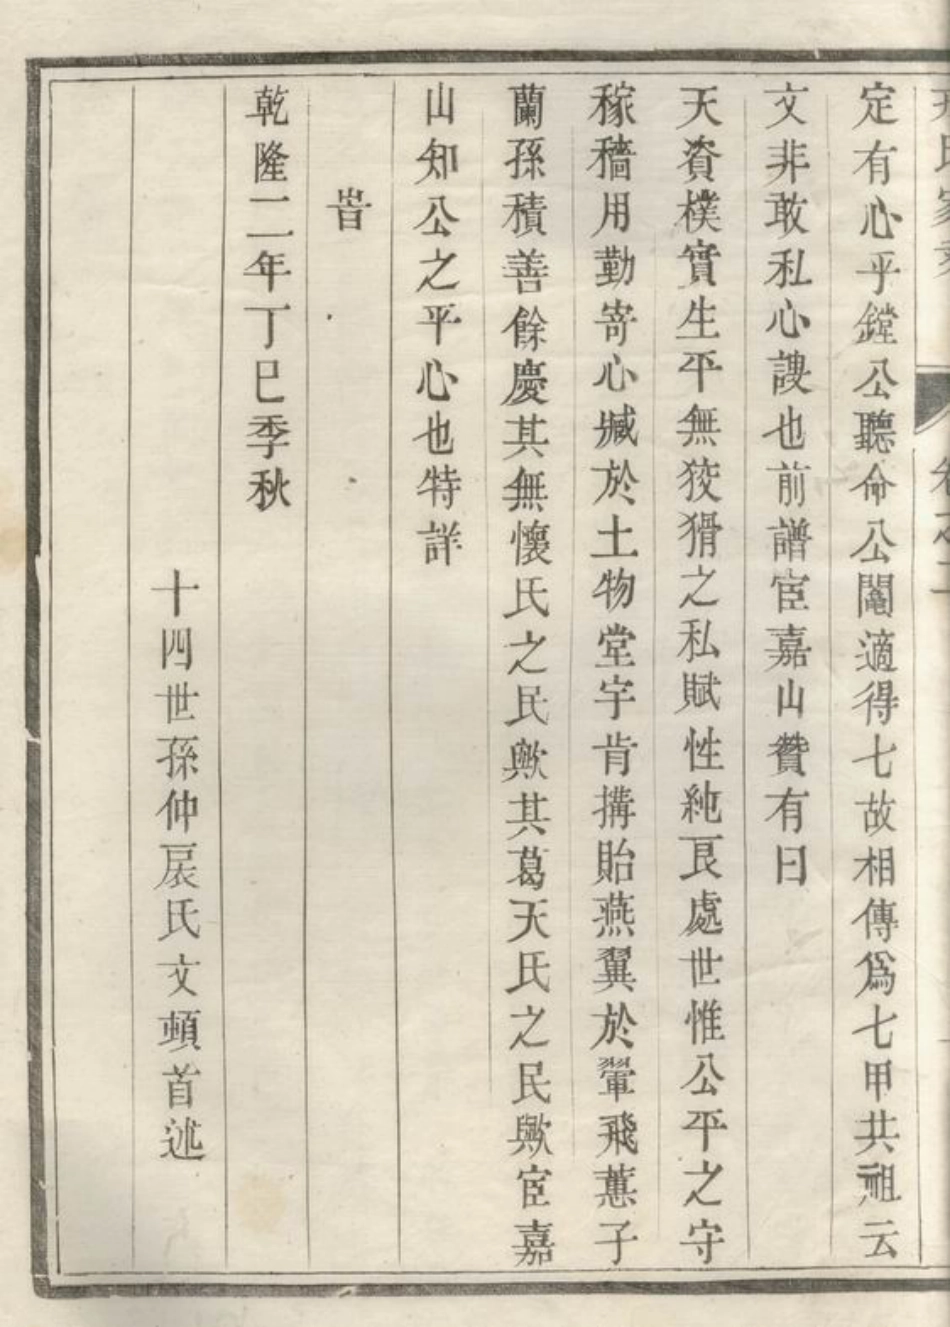 定有心乎鏜公聽命公鬮適得七故相傳爲七甲共祖云
文非敢私心謏也前譜宦嘉山贊有曰
天資樸實生平無狡猾之私賦性純良處世惟公平之守
稼穡用勤寄心臧於土物堂宇肯搆貽燕翼於翬飛蕙子
蘭孫積善餘慶其無懷氏之民歟其葛天氏之民歟宦嘉
山知公之平心也特詳
旹
乾隆二年丁巳季秋
十四世孫仲扆氏文頓首述